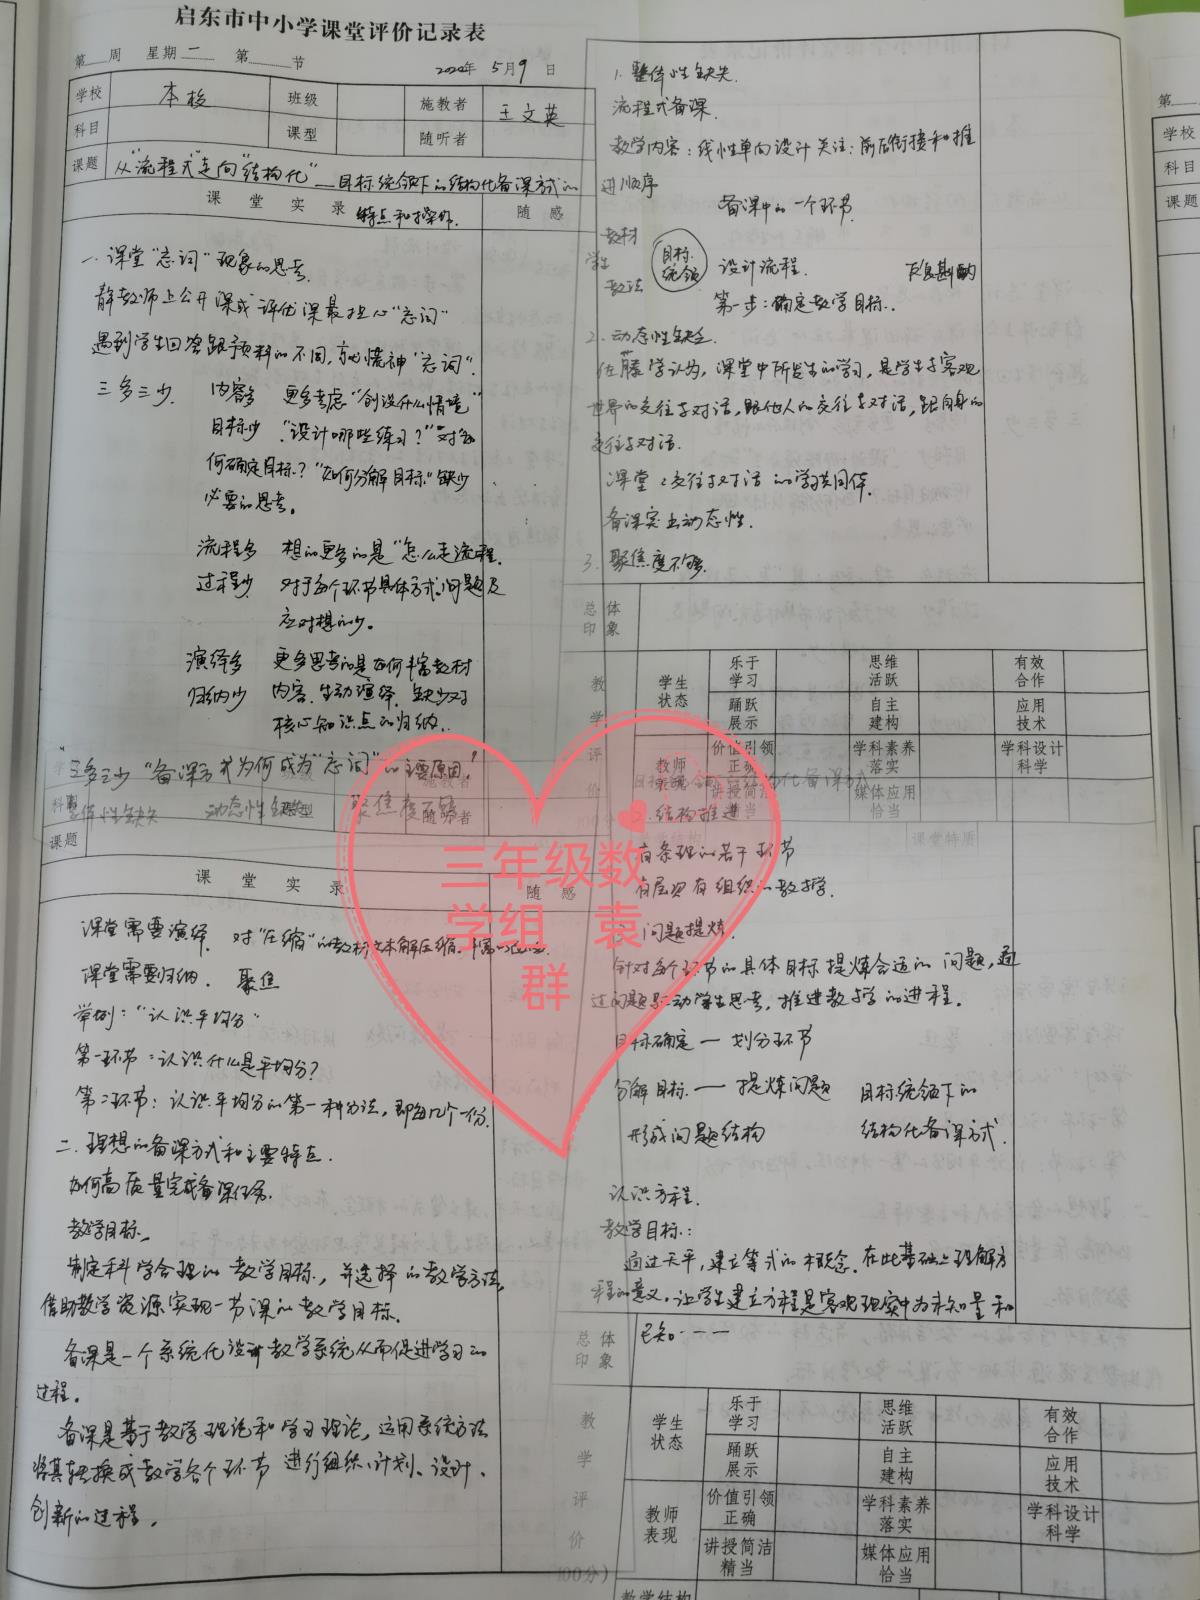 启东市中小学课堂评价记录表
第 周 星期二 第 节
5月9日
学校 本校 班级 施教者 王文英
科目 课型 随听者
课题 从“流程式”走向“结构化”—目标统领下的结构化备课方式的
特点和操作
课堂实录 随感
一、课堂“忘词”现象的思考
教师上公开课或评优课最担心“忘词”
遇到学生回答跟预料的不同,就慌神“忘词”.
三多三少. 内容多 更多考虑“创设什么情境”
目标少 “设计哪些练习?”对如
何确定目标?“如何分解目标”缺少
必要的思考。
流程多 想的更多的是“怎么走流程.
过程少 对于每个环节具体方式、问题及
应对想的少。
演绎多 更多思考的是如何丰富教材
归纳少 内容、生动演绎. 缺少对
核心知识点的归纳.
“三多三少”备课方式为何成为“忘词”的主要原因?
整体性缺失 动态性 聚焦度不够
课题
课堂实录 随感
课堂需要演绎. 对“压缩”的教材文本解压缩.
课堂需要归纳. 聚焦
举例:“认识平均分”
第一环节:认识什么是平均分?
第二环节:认识平均分的第一种分法,即每几个一份.
二. 理想的备课方式和主要特点.
如何高质量完成备课任务.
教学目标.
制定科学合理的教学目标,并选择的教学方法,
借助教学资源实现一节课的教学目标.
备课是一个系统化设计教学系统从而促进学习的
过程.
备课是基于教学理论和学习理论,运用系统方法
将其转换成教学各个环节 进行组织、计划、设计、
创新的过程.
1. 整体性缺失.
流程式备课.
教学内容:线性单向设计 关注:前后衔接和推
进顺序
备课中的一个环节.
教材
学生 目标统领 设计流程. 反复斟酌
教法
第一步:确定教学目标.
2. 动态性缺乏
佐藤学认为,课堂中所发生的学习,是学生与客观
世界的交往与对话,跟他人的交往与对话,跟自身的
交往与对话.
课堂:交往与对话 的学习共同体.
备课突出动态性.
3. 聚焦度不够.
总体印象
教学评价
学生状态 乐于学习 思维活跃 有效合作
踊跃展示 自主建构 应用技术
教师表现 价值引领正确 学科素养落实 学科设计科学
讲授简洁精当 媒体应用恰当
课堂特质
2. 结构推进
有条理的若干环节
有层次有组织的教学.
三年级数
学组 袁
群
3. 问题提炼.
针对每个环节的具体目标提炼合适的问题,通
过问题驱动学生思考,推进教学的进程.
目标确定 — 划分环节
分解目标 — 提炼问题 目标统领下的
形成问题结构 结构化备课方式.
认识方程.
教学目标:
通过天平,建立等式的概念.在此基础上理解方
程的意义.让学生建立方程是客观现实中为未知量和
已知———
总体印象
教学评价(100分)
学生状态 乐于学习 思维活跃 有效合作
踊跃展示 自主建构 应用技术
教师表现 价值引领正确 学科素养落实 学科设计科学
讲授简洁精当 媒体应用恰当
教学结构
第
学校
科目
课题